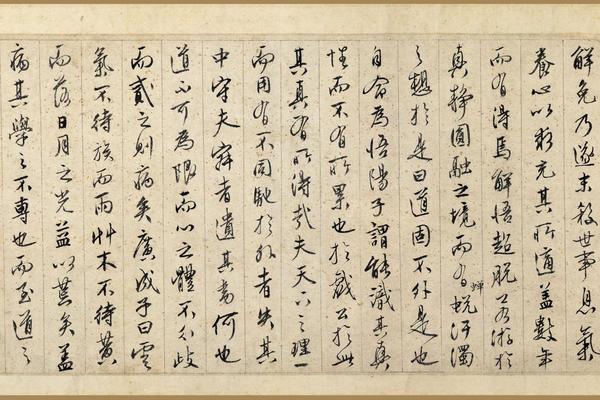 解免乃遂末殺世事息氣
養心以務充其所適蓋數年
而有得焉解悟超脫公若游於
真靜圓融之境而有蟬蛻汙濁
之想於是曰道固不外是也
自命為悟陽子謂能識其真
性而不有所累也於戲公於此
其真有所得哉夫天下之理一
而用有不同馳於外者失其
中守夫寂者遺其為何也
道不可為限而心之體不分歧
而貳之則病矣廣成子曰雲
氣不待族而雨艸木不待黃
而落日月之光益以荒矣蓋
病其學之不專也而至道之